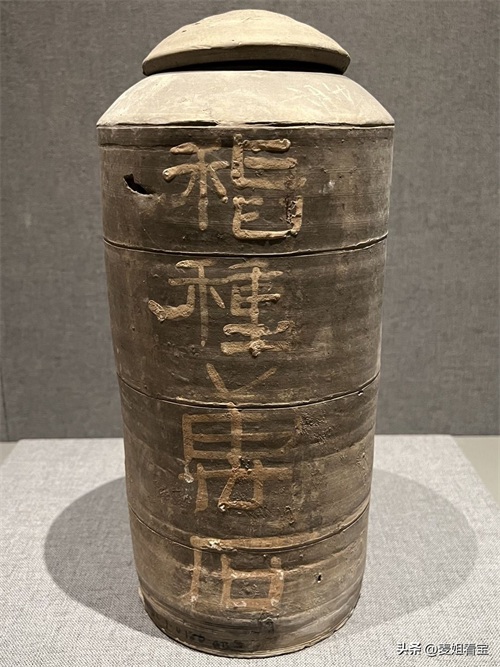 稻種萬石
头条 @姐看宝